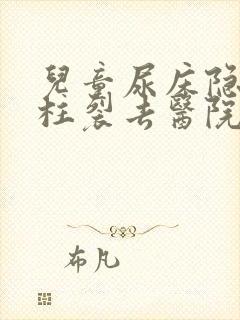 兒童尿床隐
柱裂去醫院
布凡